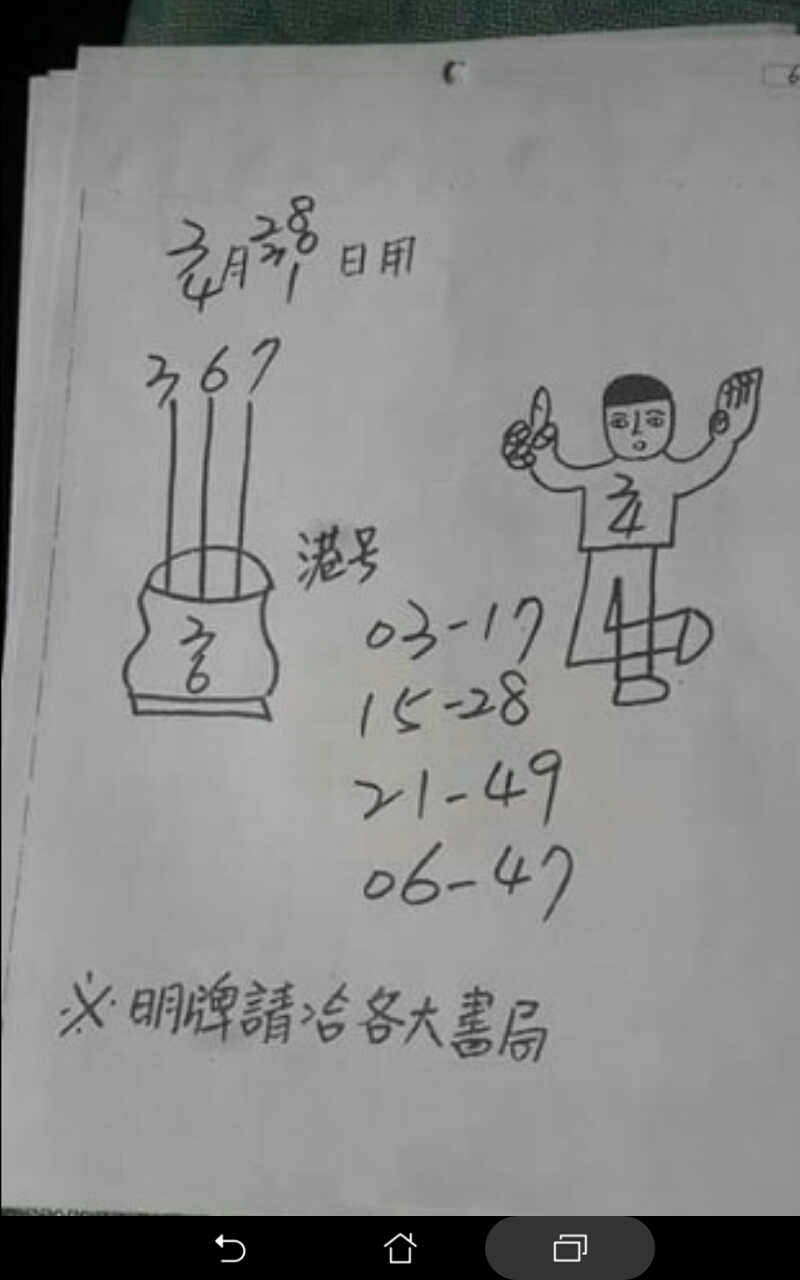 3月28日用
4 30 1
3 6 7
3
4
港号
3
6
03-17
15-28
21-49
06-47
※明牌請洽各大書局
6